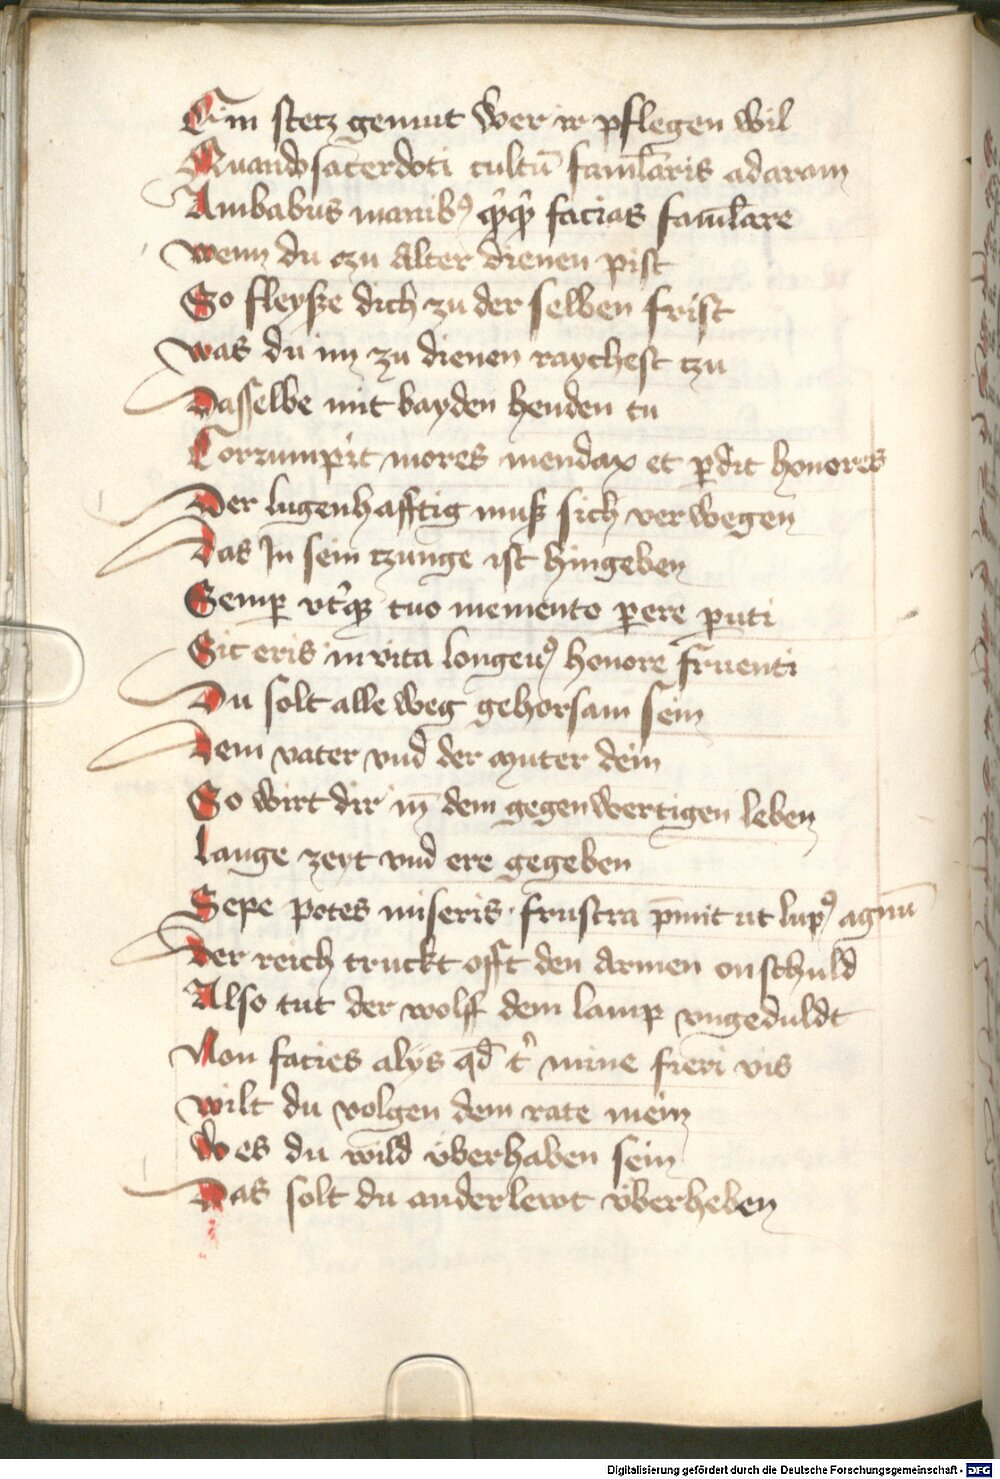 Ein stetz gemut wer ir pflegen wil
Quando sacerdoti cultū famłaris ad aram
Ambabus manibꝰ facias famłare
wenn du czu alter dienen pist
So fleysze dich zu der selben frist
was du im zu dienen raychest tzu
Dasselbe mit bayden henden tu
Corrumpit mores mendax et ꝑdit honores
Der lugenhafftig muß sich verwegen
Das In sein tzunge ist hingeben
Semꝑ tuo memento ꝑere
Sic eris in vita longeuꝰ honore fruenti
Du solt alle weg gehorsam sein
Dem vater vnd der muter dein
So wirt dir in̄ dem gegenwertigen leben
Lange zeyt vnd ere gegeben
Sepe potes miseris frustra p̄mit ut lupꝰ agnū
Der reich truckt offt den armen onschuld
Also tut der wolff dem lamp vngeduldt
Non facies alijs qd̄ minime fieri vis
wilt du volgen dem rate mein
Wes du wild vberhaben sein
Das solt du ander lewt vberheben
Digitalisierung gefördert durch die Deutsche Forschungsgemeinschaft - DFG